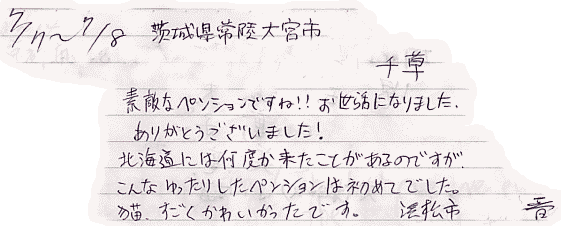 7/7~7/8 茨城県常陸大宮市
千草
素敵なペンションですね!! お世話になりました.
ありがとうございました!
北海道には何度か来たことがあるのですが
こんな ゆったりしたペンションは初めてでした。
猫、すごくかわいかったです。 浜松市